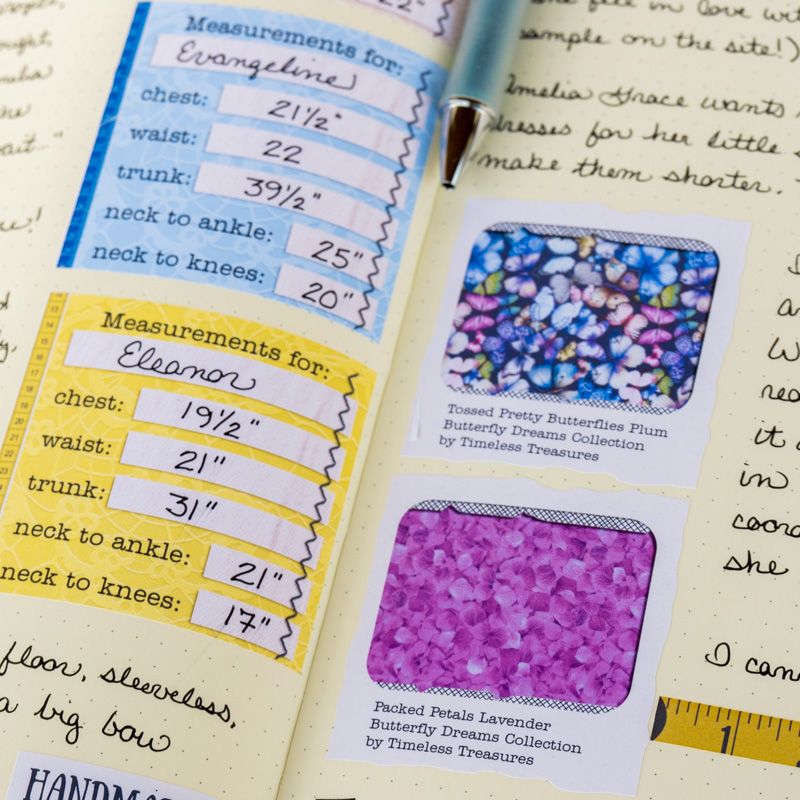 22"
Measurements for:
Evangeline
chest: 21 1/2"
waist: 22
trunk: 39 1/2"
neck to ankle: 25"
neck to knees: 20"
Measurements for:
Eleanor
chest: 19 1/2"
waist: 21"
trunk: 31"
neck to ankle: 21"
neck to knees: 17"
floor, sleeveless,
a big bow
fell in love
sample on the site!)
Amelia Grace wants
dresses for her little
make them shorter.
Tossed Pretty Butterflies Plum
Butterfly Dreams Collection
by Timeless Treasures
it
in
she
I can
Packed Petals Lavender
Butterfly Dreams Collection
by Timeless Treasures
1